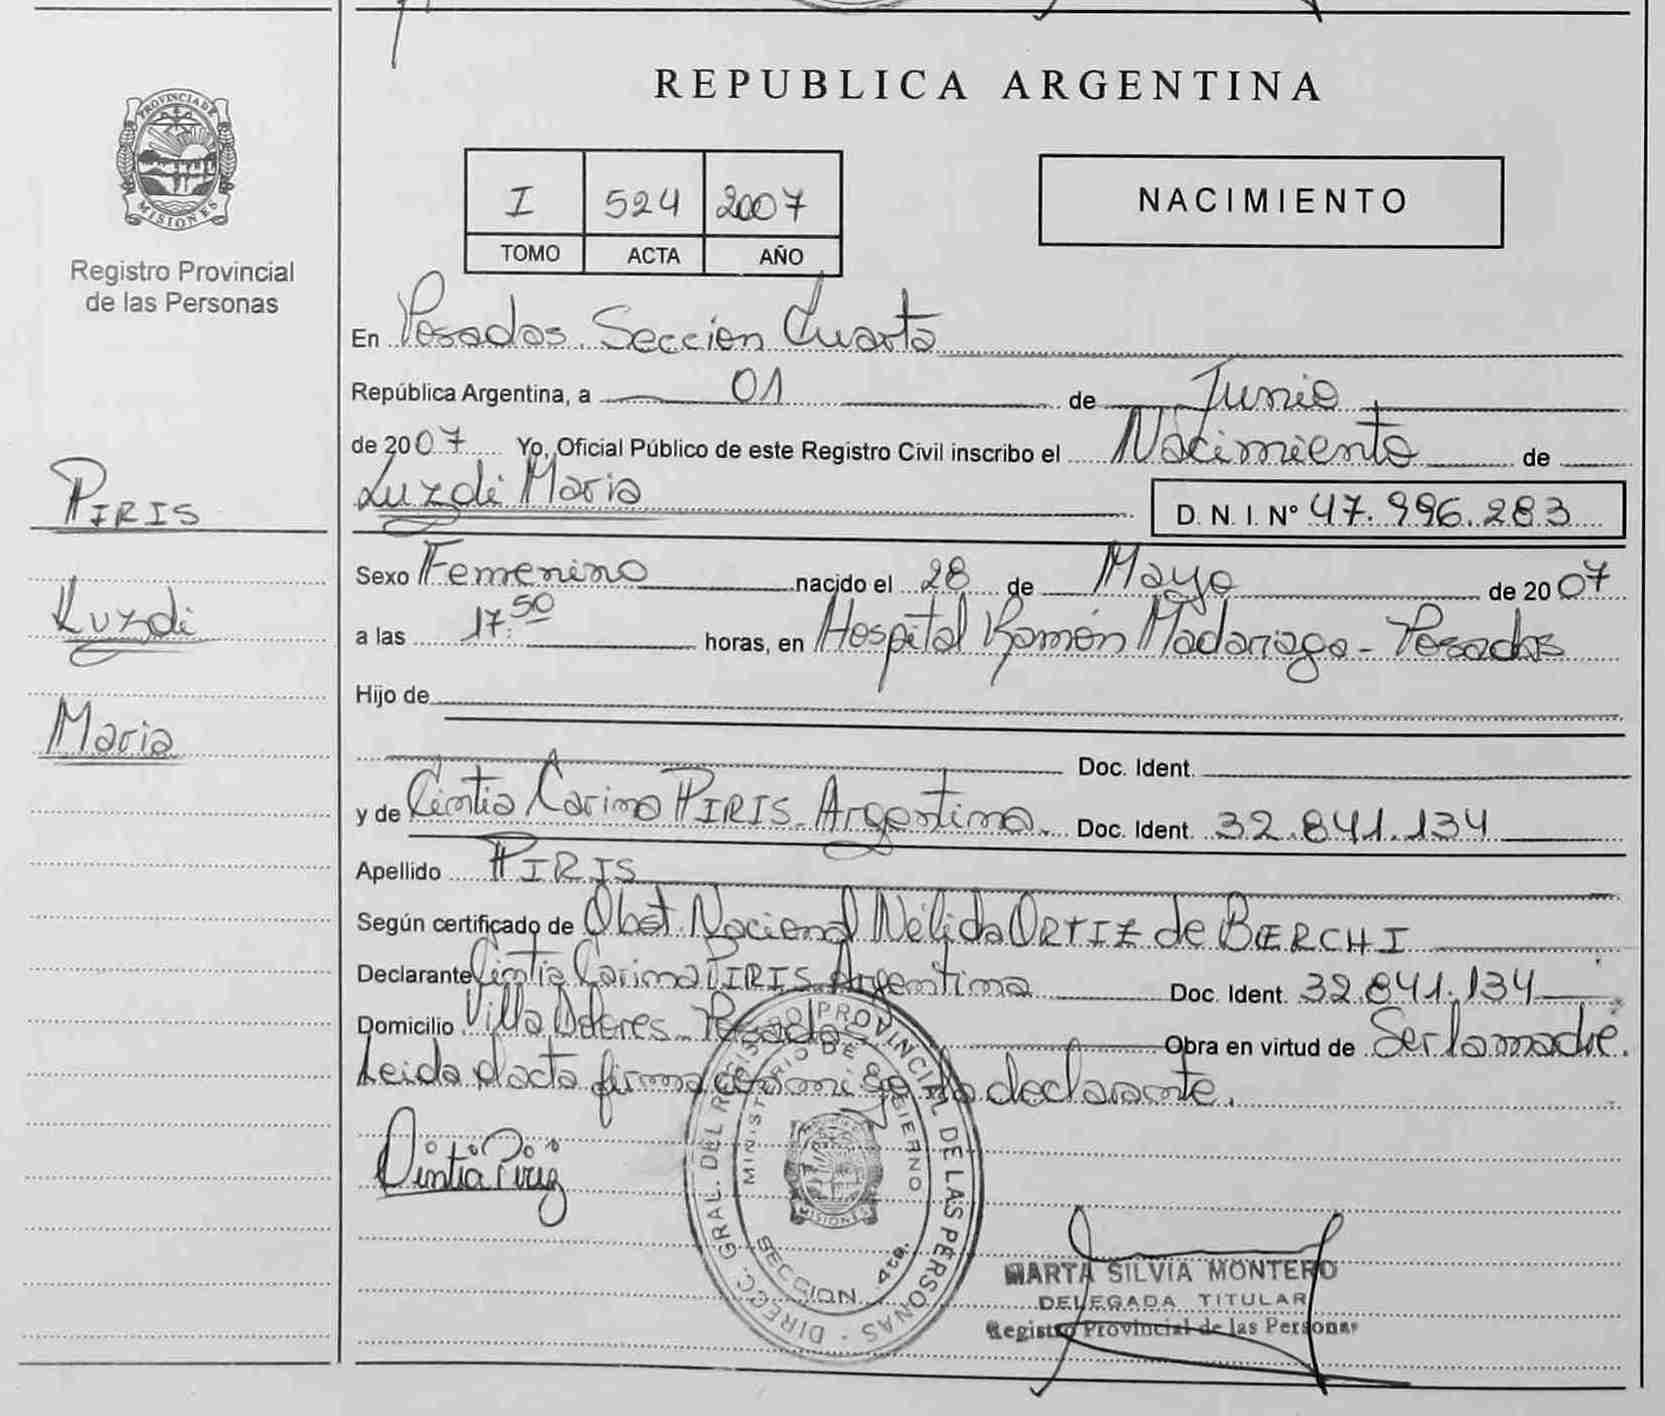 PROVINCIA DE
MISIONES
Registro Provincial
de las Personas
PIRIS
Luzdi
Maria
REPUBLICA ARGENTINA
I 524 2007
TOMO ACTA AÑO
NACIMIENTO
En Posadas. Sección Cuarta
República Argentina, a 01 de Junio
de 2007 Yo, Oficial Público de este Registro Civil inscribo el Nacimiento de
Luzdi Maria D. N. I. Nº 47.996.283
Sexo Femenino nacido el 28 de Mayo de 2007
a las 17:50 horas, en Hospital Ramón Madariaga - Posadas
Hijo de
Doc. Ident.
y de Cintia Carina PIRIS - Argentina. Doc. Ident. 32.841.134
Apellido PIRIS
Según certificado de Obst. Nacional Nélida ORTIZ de BERCHI
Declarante Cintia Carina PIRIS Argentina Doc. Ident. 32.841.134
Domicilio Villa Dolores - Posadas Obra en virtud de Ser la madre.
Leida el acta firma conmigo la declarante.
Cintia Piriz
DIRECC. GRAL. DEL REGISTRO PROVINCIAL DE LAS PERSONAS
MINISTERIO DE GOBIERNO
MISIONES
SECCION 4ta.
MARTA SILVIA MONTERO
DELEGADA TITULAR
Registro Provincial de las Personas